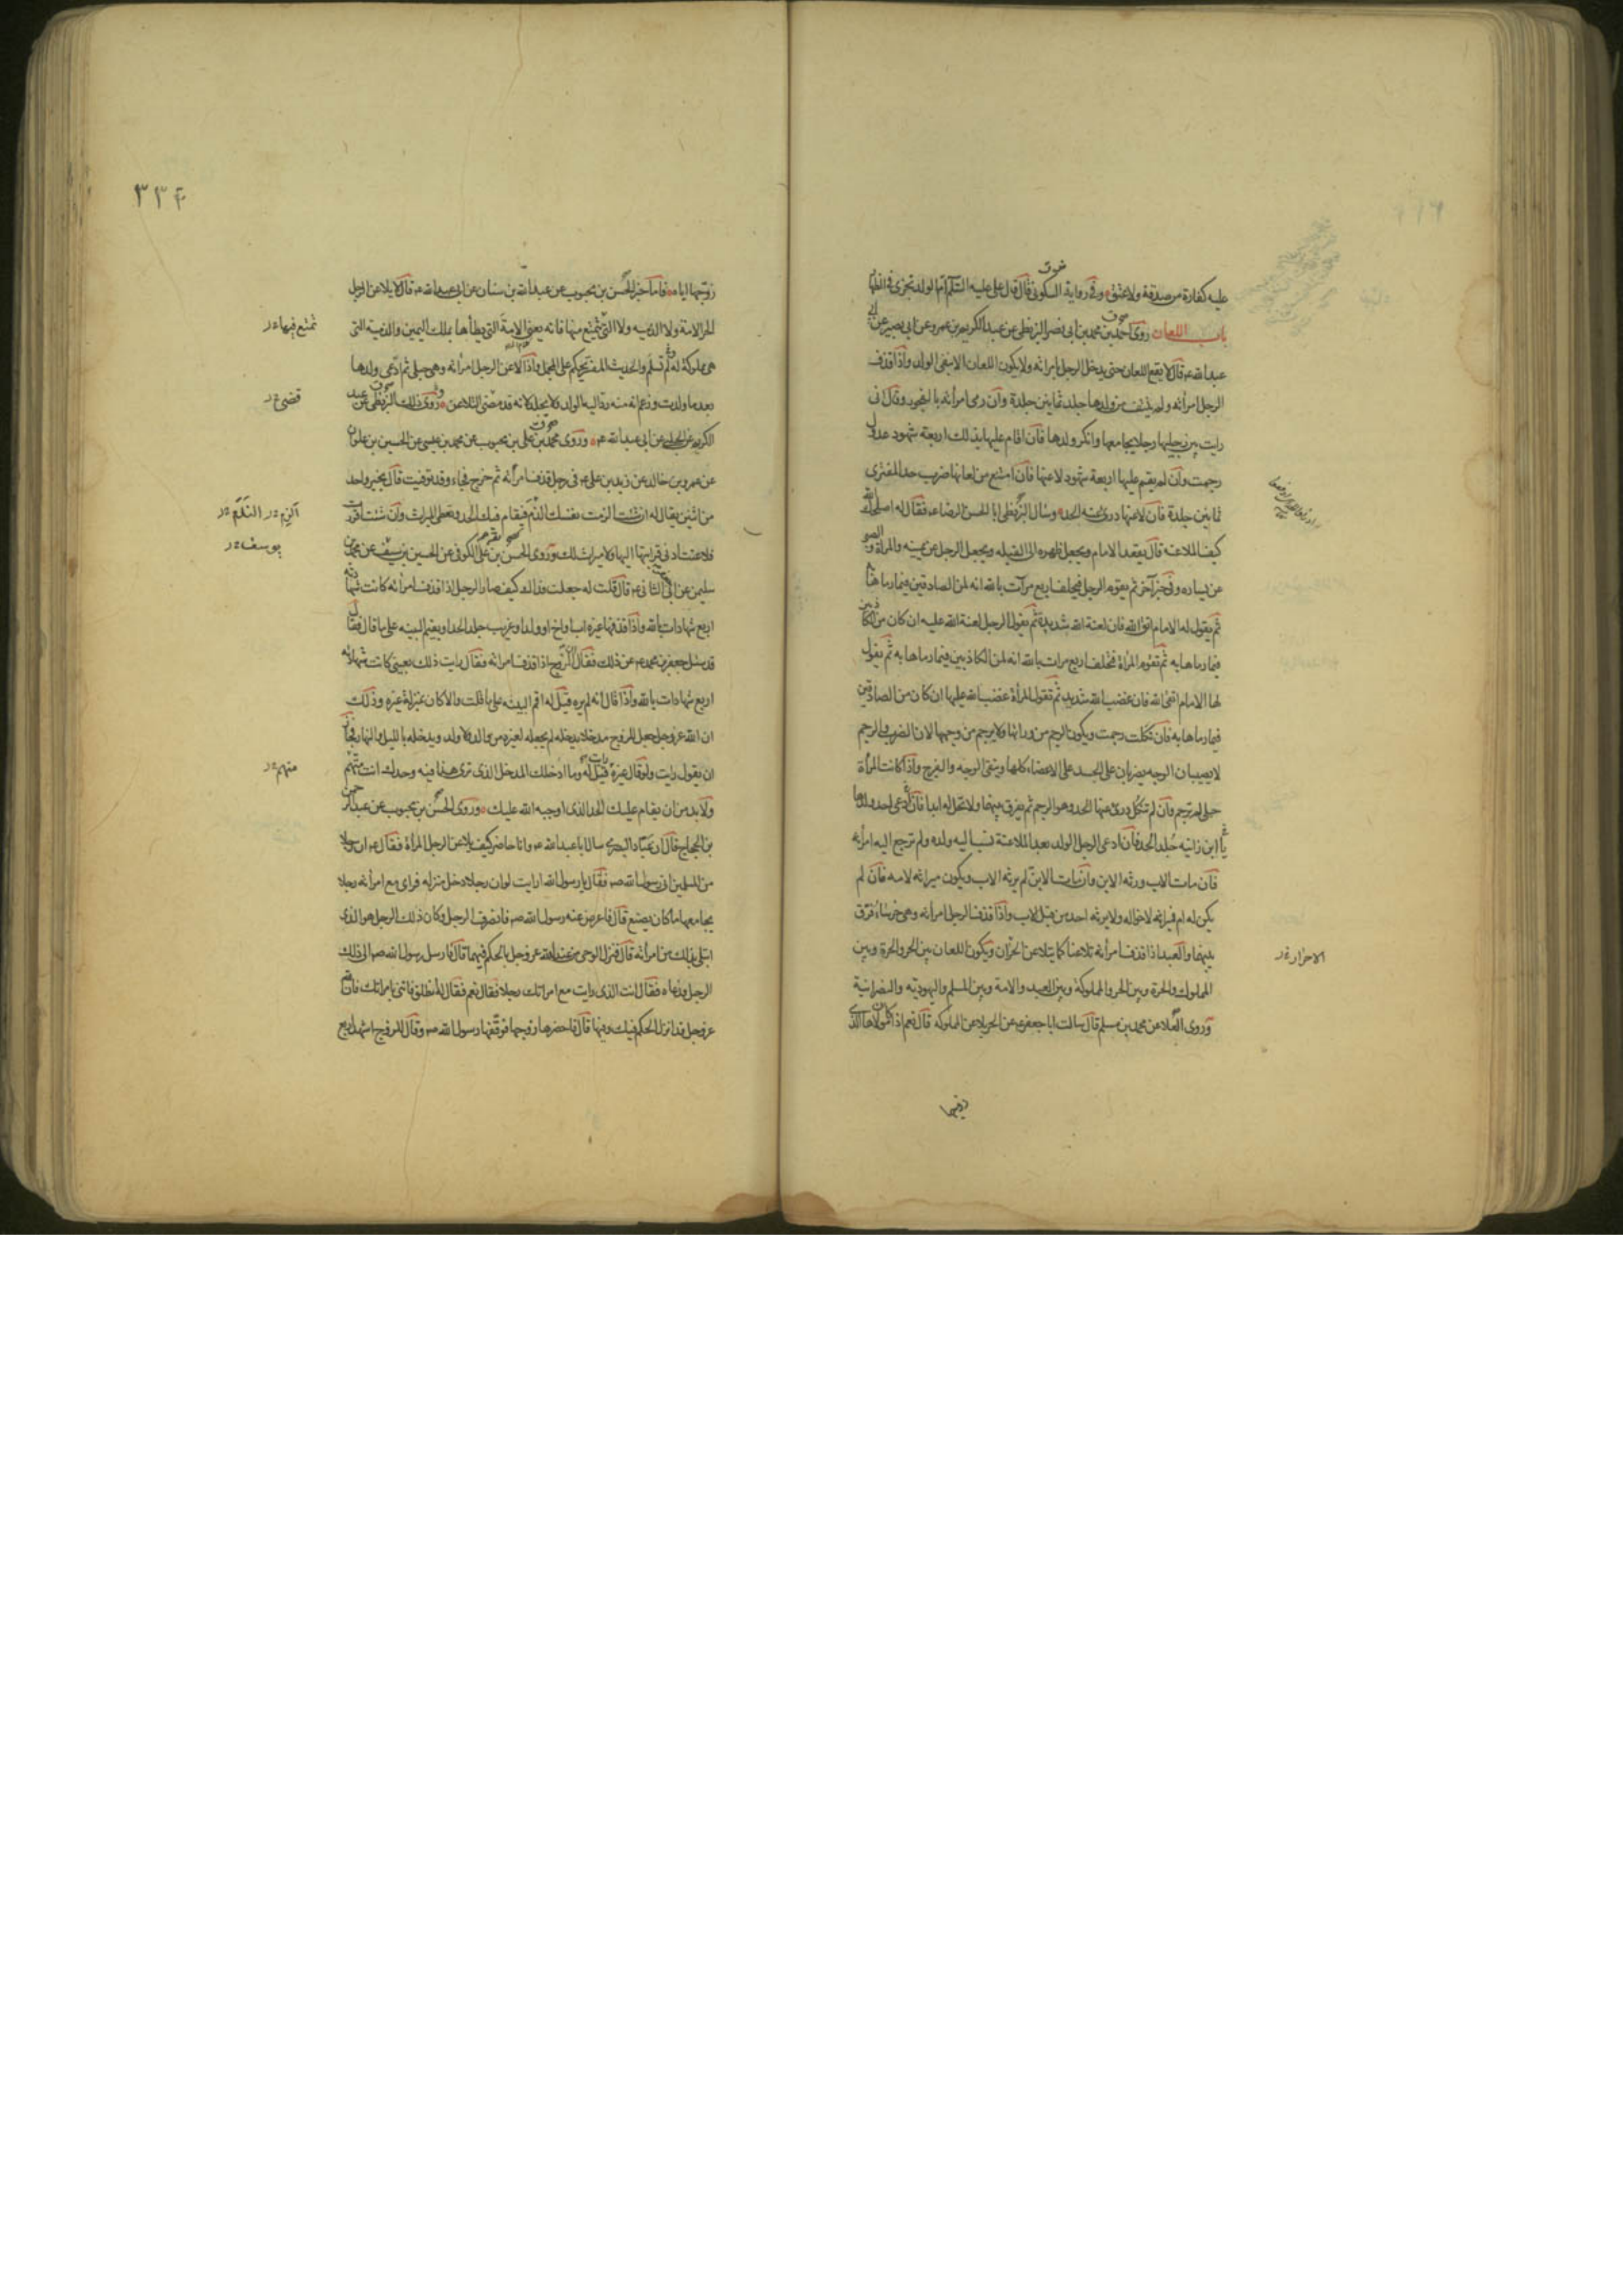 عليه كفارة من صدقة ولا عتق وفي رواية السكوني قال قال علي عليه السلام ام الولد تجزي في الظهار
باب اللعان روى احمد بن محمد بن ابي نصر البزنطي عن عبد الكريم بن عمرو عن ابي بصير عن ابي
عبد الله ع قال لا يقع اللعان حتى يدخل الرجل بامراته ولا يكون اللعان الا بنفي الولد واذا قذف
الرجل امرأته ولم ينتف من ولدها جلد ثمانين جلدة وان رمى امرأته بالفجور وقال اني
رايت بين رجليها رجلا يجامعها وانكر ولدها فان اقام عليها بذلك اربعة شهود عدول
رجمت وان لم يقم عليها اربعة شهود لاعنها فان امتنع من لعانها ضرب حد المفتري
ثمانين جلدة فان لاعنها درئ عنه الحد وسال البزنطي ابا الحسن الرضا ع فقال له اصلحك الله
كيف الملاعنة قال يقعد الامام ويجعل ظهره الى القبلة ويجعل الرجل عن يمينه والمراة والصبي
عن يساره وفي خبر آخر ثم يقوم الرجل فيحلف اربع مرات بالله انه لمن الصادقين فيما رماها به
ثم يقول له الامام اتق الله فان لعنة الله شديدة ثم يقول الرجل لعنة الله عليه ان كان من الكاذبين
فيما رماها به ثم تقوم المرأة فتحلف اربع مرات بالله انه لمن الكاذبين فيما رماها به ثم يقول
لها الامام اتقي الله فان غضب الله شديد ثم تقول المرأة غضب الله عليها ان كان من الصادقين
فيما رماها به فان نكلت رجمت ويكون الرجم من ورائها ولا يرجم من وجهها لان الضرب والرجم
لا يصيبان الوجه يضربان على الجسد على الاعضاء كلها ويتقى الوجه والفرج واذا كانت المرأة
حبلى لم ترجم وان لم تنكل درئ عنها الحد وهو الرجم ثم يفرق بينهما ولا تحل له ابدا فان دعى احد ولدها
يا ابن زانية جلد الحد فان ادعى الرجل الولد بعد الملاعنة نسب اليه ولده ولم ترجع اليه امرأته
فان مات الاب ورثه الابن وان مات الابن لم يرثه الاب ويكون ميراثه لامه فان لم
يكن له ام فميراثه لاخواله ولا يرثه احد من قبل الاب واذا قذف الرجل امرأته وهي خرساء فرق
بينهما والعبد اذا قذف امرأته تلاعنا كما يتلاعن الحران ويكون اللعان بين الحر والحرة وبين
المملوك والحرة وبين الحر والمملوكة وبين العبد والامة وبين المسلم واليهودية والنصرانية
وروى العلا عن محمد بن مسلم قال سالت ابا جعفر ع عن الحر يلاعن المملوكة قال نعم اذا كان مولاها الذي
الاحرار
زوجها
٣٣۴
زوجها اياه فاما خبر الحسن بن محبوب عن عبد الله بن سنان عن ابي عبد الله ع قال لا يلاعن الرجل
الحر الامة ولا الذمية ولا التي يتمتع منها فانه يعني الامة التي يطأها بملك اليمين والذمية التي
هي مملوكة له ولم تسلم والحديث المفسر يحكم على المجمل واذا لاعن الرجل امرأته وهي حبلى ثم ادعى ولدها
بعد ما ولدت وزعم انه منه رد اليه الولد ولا يجلد لانه قد مضى التلاعن وروى ذلك البزنطي عن عبد
الكريم عن الحلبي عن ابي عبد الله ع وروى محمد بن علي بن محبوب عن محمد بن عيسى عن الحسين بن علوان
عن عمرو بن خالد عن زيد بن علي ع في رجل قذف امرأته ثم خرج فجاء وقد توفيت قال يخير واحد
من اثنين يقال له ان شئت الزمت نفسك الذنب فيقام فيك الحد وتعطى الميراث وان شئت اقررت
فلاعنت ادنى قرابتها اليها ولا ميراث لك وروى الحسن بن علي الكوفي عن الحسين بن سيف عن محمد بن
سليمن عن ابي جعفر الثاني ع قال قلت له جعلت فداك كيف صار الرجل اذا قذف امرأته كانت شهادته
اربع شهادات بالله واذا قذفها غيره اب او اخ او ولد او غريب جلد الحد او يقيم البينة على ما قال فقال
قد سئل جعفر بن محمد ع عن ذلك فقال ان الزوج اذا قذف امرأته فقال رايت ذلك بعيني كانت شهادته
اربع شهادات بالله واذا قال انه لم يره قيل له اقم البينة على ما قلت والا كان بمنزلة غيره وذلك
ان الله عز وجل جعل للزوج مدخلا يدخله لم يجعله لغيره من والد ولا ولد ويدخله بالليل والنهار فجاز
ان يقول رايت ولو قال غيره رايت قيل له وما ادخلك المدخل الذي ترى هذا فيه وحدك انت متهم
ولا بد من ان يقام عليك الحد الذي اوجبه الله عليك وروى الحسن بن محبوب عن عبد الرحمن
بن الحجاج قال ان عباد البصري سال ابا عبد الله ع وانا حاضر كيف يلاعن الرجل المرأة فقال ع ان رجلا
من المسلمين اتى رسول الله ص فقال يا رسول الله ارايت لو ان رجلا دخل منزله فراى مع امرأته رجلا
يجامعها ما كان يصنع قال فاعرض عنه رسول الله ص فانصرف الرجل وكان ذلك الرجل هو الذي
ابتلي بذلك من امرأته قال فنزل الوحي من عند الله عز وجل بالحكم فيهما قال فارسل رسول الله ص الى ذلك
الرجل فدعاه فقال انت الذي رايت مع امراتك رجلا فقال نعم فقال له انطلق فاتني بامراتك فان الله
عز وجل قد انزل الحكم فيك وفيها قال فاحضرها زوجها فوقفها رسول الله ص وقال للزوج اشهد اربع
تمتع فيها
قضى
يوسف
متهم